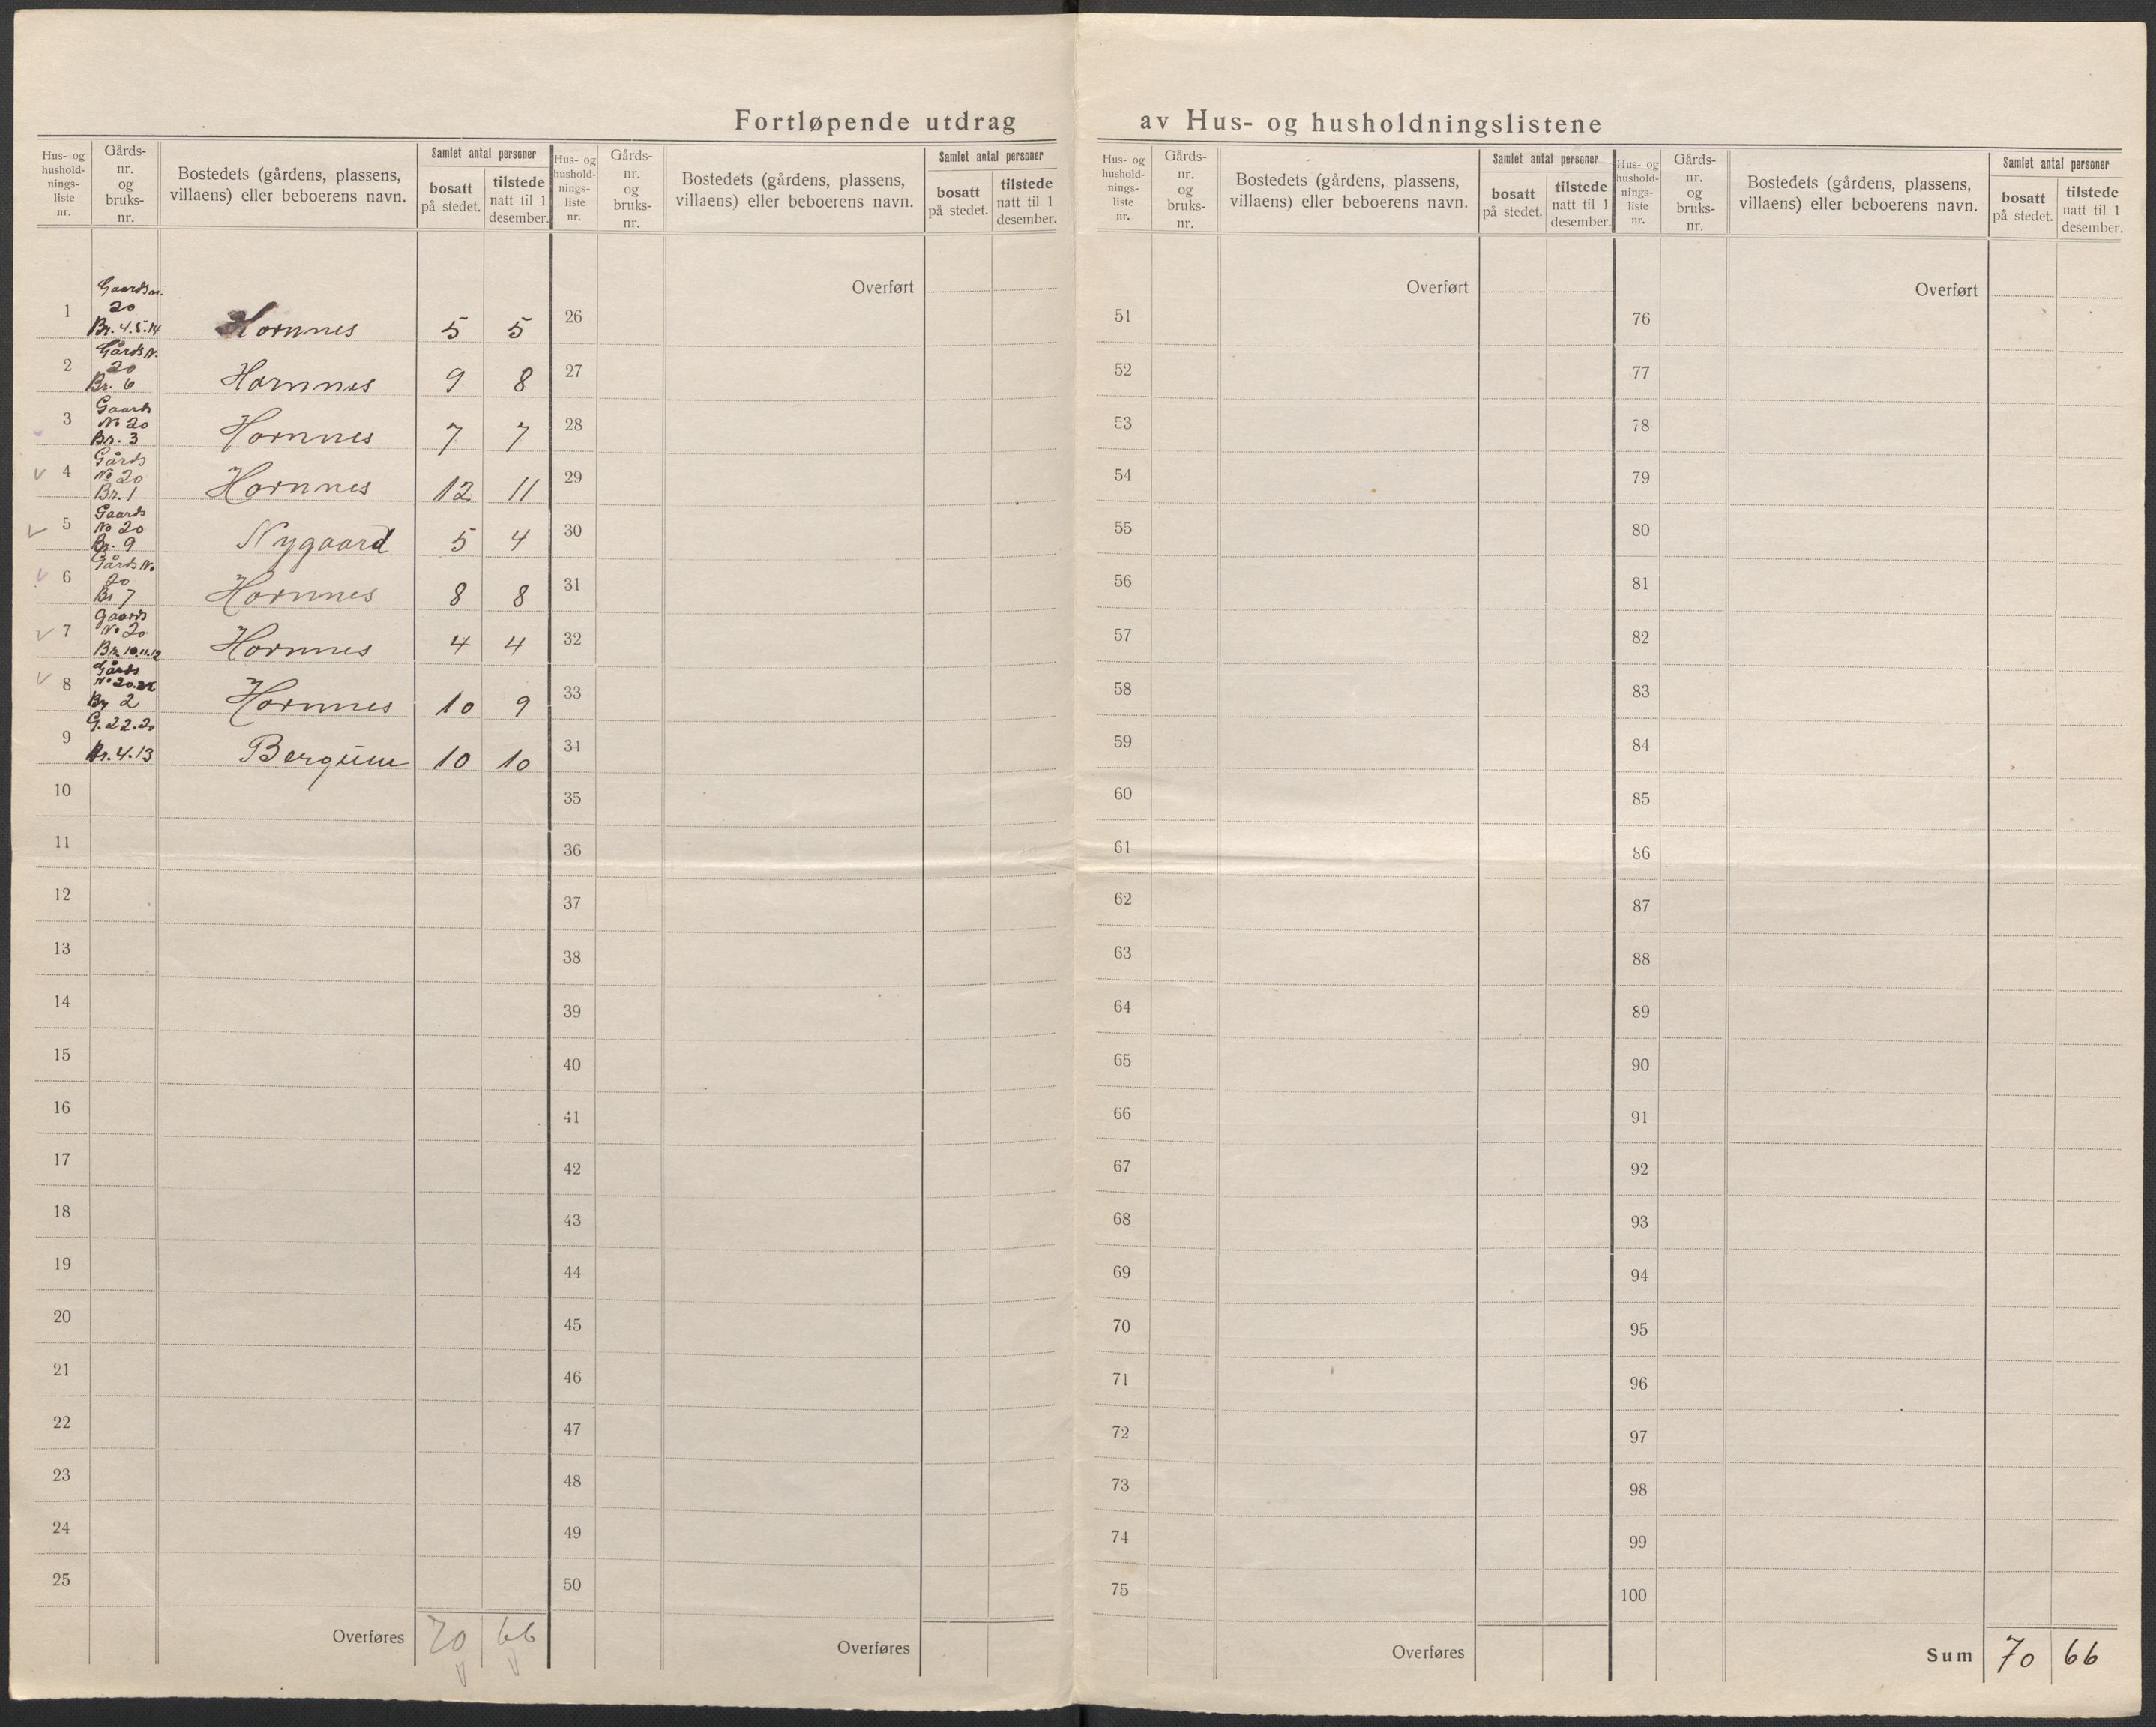 Fortløpende utdrag av Hus- og husholdningslistene
Hus- og
hushold-
nings-
liste
nr.
Gårds-
nr.
og
bruks-
nr.
Bostedets (gårdens, plassens,
villaens) eller beboerens navn.
Samlet antal personer
bosatt
på stedet.
tilstede
natt til 1
desember.
1 Gaards nr. 20 Br. 4.5.14 Hornnes 5 5
2 Gårds N. 20 Br. 6 Hornnes 9 8
3 Gaards No 20 Br. 3 Hornnes 7 7
4 Gårds No 20 Br. 1 Hornnes 12 11
5 Gaards No 20 Br. 9 Nygaard 5 4
6 Gårds No. 20 Br 7 Hornnes 8 8
7 Gaards No 20 Br. 10.11.12 Hornnes 4 4
8 Gårds No 20.22 Br 2 Hornnes 10 9
9 G. 22.20 Br. 4.13 Bergum 10 10
10
11
12
13
14
15
16
17
18
19
20
21
22
23
24
25
Overføres 70 66
Hus- og
hushold-
nings-
liste
nr.
Gårds-
nr.
og
bruks-
nr.
Bostedets (gårdens, plassens,
villaens) eller beboerens navn.
Samlet antal personer
bosatt
på stedet.
tilstede
natt til 1
desember.
Overført
26
27
28
29
30
31
32
33
34
35
36
37
38
39
40
41
42
43
44
45
46
47
48
49
50
Overføres
Hus- og
hushold-
nings-
liste
nr.
Gårds-
nr.
og
bruks-
nr.
Bostedets (gårdens, plassens,
villaens) eller beboerens navn.
Samlet antal personer
bosatt
på stedet.
tilstede
natt til 1
desember.
Overført
51
52
53
54
55
56
57
58
59
60
61
62
63
64
65
66
67
68
69
70
71
72
73
74
75
Overføres
Hus- og
hushold-
nings-
liste
nr.
Gårds-
nr.
og
bruks-
nr.
Bostedets (gårdens, plassens,
villaens) eller beboerens navn.
Samlet antal personer
bosatt
på stedet.
tilstede
natt til 1
desember.
Overført
76
77
78
79
80
81
82
83
84
85
86
87
88
89
90
91
92
93
94
95
96
97
98
99
100
Sum 70 66